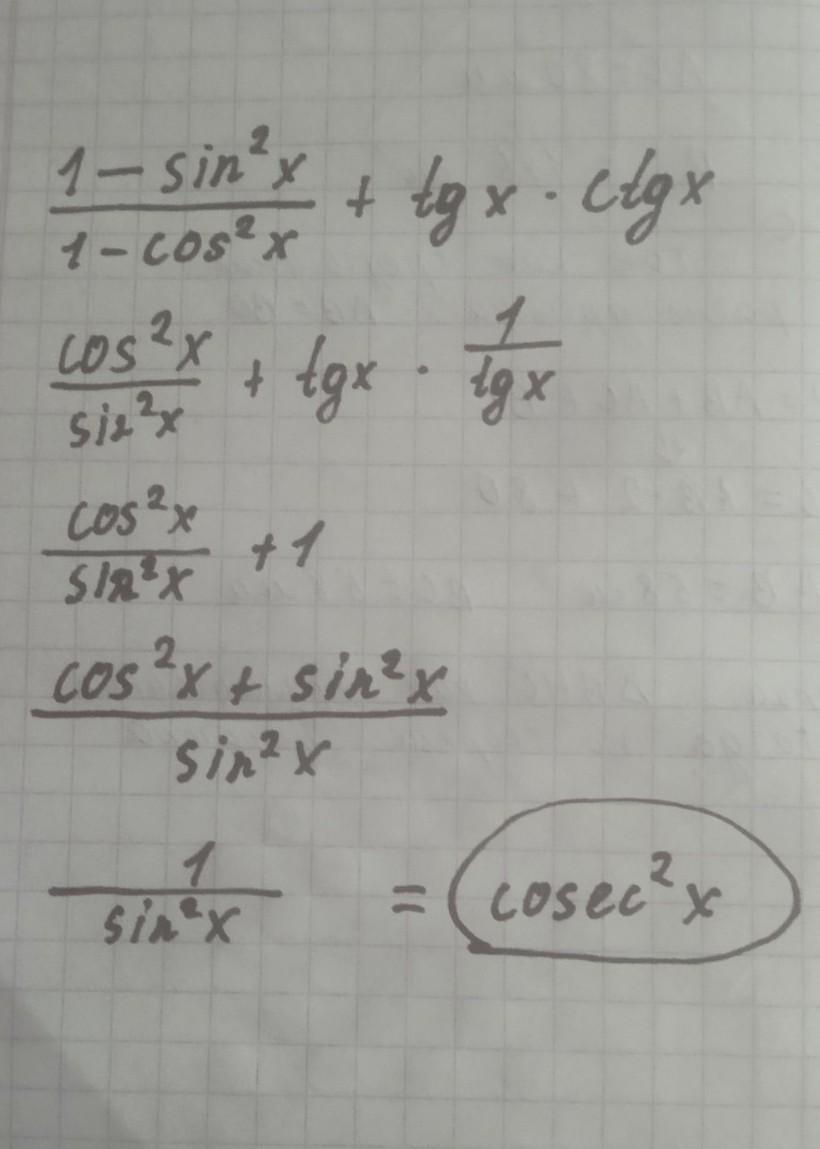 1 - sin²x / 1 - cos²x + tg x · ctg x
cos²x / sin²x + tg x · 1 / tg x
cos²x / sin²x + 1
cos²x + sin²x / sin²x
1 / sin²x = cosec²x